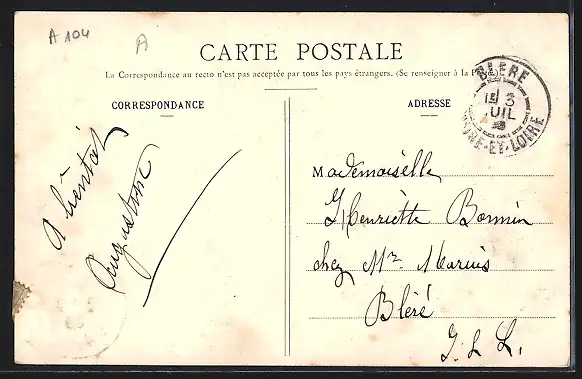 A 104
A
CARTE POSTALE
La Correspondance au recto n'est pas acceptée par tous les pays étrangers. (Se renseigner à la Poste)
CORRESPONDANCE
ADRESSE
BLÉRÉ
13
JUIL
INDRE-ET-LOIRE
A bientôt
Augustine
Mademoiselle
Henriette Bonnin
chez Mr. Marius
Bléré
I. & L.